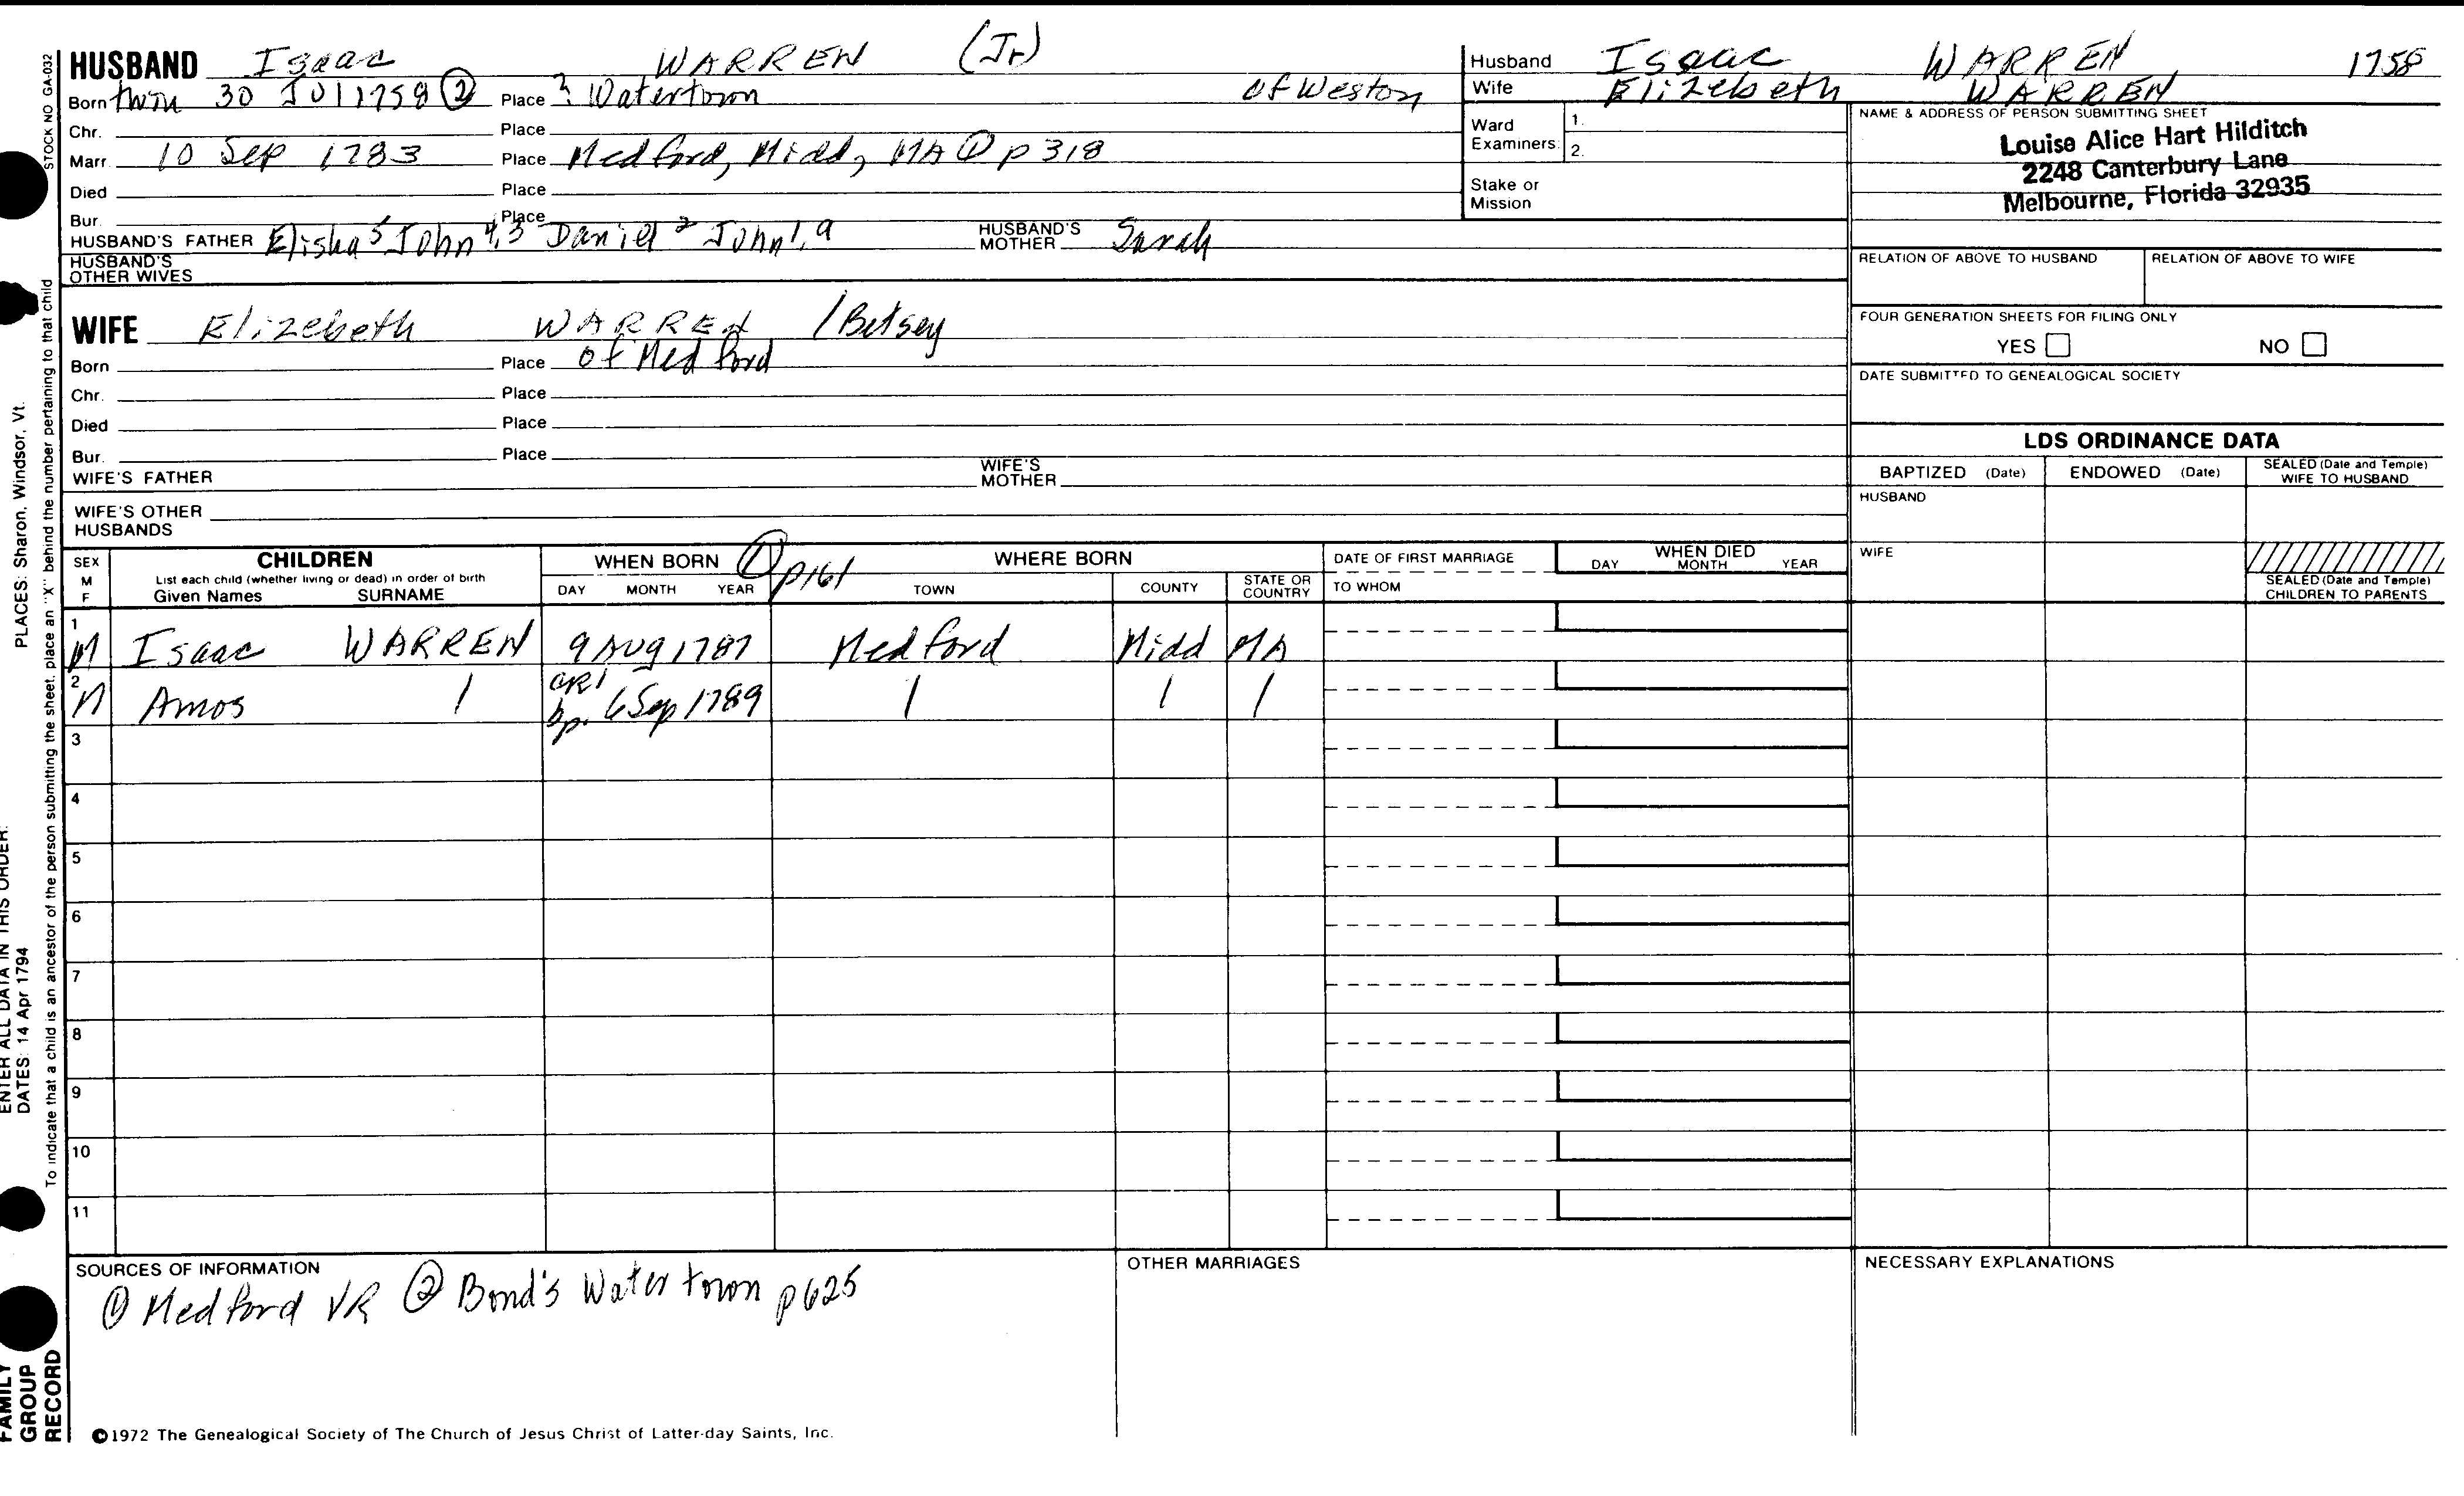 HUSBAND Isaac WARREN (Jr)
Born twin 30 Jul 1758 ② Place ? Watertown of Weston
Chr. Place
Marr. 10 Sep 1783 Place Medford, Midd, MA ① p 318
Died Place
Bur. Place
HUSBAND'S FATHER Elisha 5 John 4,3 Daniel 2 John 1, 9 HUSBAND'S MOTHER Sarah
HUSBAND'S OTHER WIVES
Husband Isaac WARREN 1758
Wife Elizebeth WARREN
Ward Examiners: 1.
2.
Stake or Mission
NAME & ADDRESS OF PERSON SUBMITTING SHEET
Louise Alice Hart Hilditch
2248 Canterbury Lane
Melbourne, Florida 32935
RELATION OF ABOVE TO HUSBAND RELATION OF ABOVE TO WIFE
FOUR GENERATION SHEETS FOR FILING ONLY
YES NO
DATE SUBMITTED TO GENEALOGICAL SOCIETY
WIFE Elizebeth WARREN /Betsey
Born Place of Medford
Chr. Place
Died Place
Bur. Place
WIFE'S FATHER WIFE'S MOTHER
WIFE'S OTHER HUSBANDS
LDS ORDINANCE DATA
BAPTIZED (Date) ENDOWED (Date) SEALED (Date and Temple) WIFE TO HUSBAND
HUSBAND
WIFE
SEALED (Date and Temple) CHILDREN TO PARENTS
SEX M F
CHILDREN
List each child (whether living or dead) in order of birth
Given Names SURNAME
WHEN BORN ① p161
DAY MONTH YEAR
WHERE BORN
TOWN COUNTY STATE OR COUNTRY
DATE OF FIRST MARRIAGE
TO WHOM
WHEN DIED
DAY MONTH YEAR
1 M Isaac WARREN 9 Aug 1787 Medford Midd MA
2 M Amos | GR1 bp. 6 Sep 1789 | | |
3
4
5
6
7
8
9
10
11
SOURCES OF INFORMATION
① Medford VR ② Bond's Watertown p625
OTHER MARRIAGES
NECESSARY EXPLANATIONS
©1972 The Genealogical Society of The Church of Jesus Christ of Latter-day Saints, Inc.
STOCK NO GA-032
To indicate that a child is an ancestor of the person submitting the sheet, place an "X" behind the number pertaining to that child
PLACES: Sharon, Windsor, Vt.
ENTER ALL DATA IN THIS ORDER:
DATES: 14 Apr 1794
FAMILY GROUP RECORD